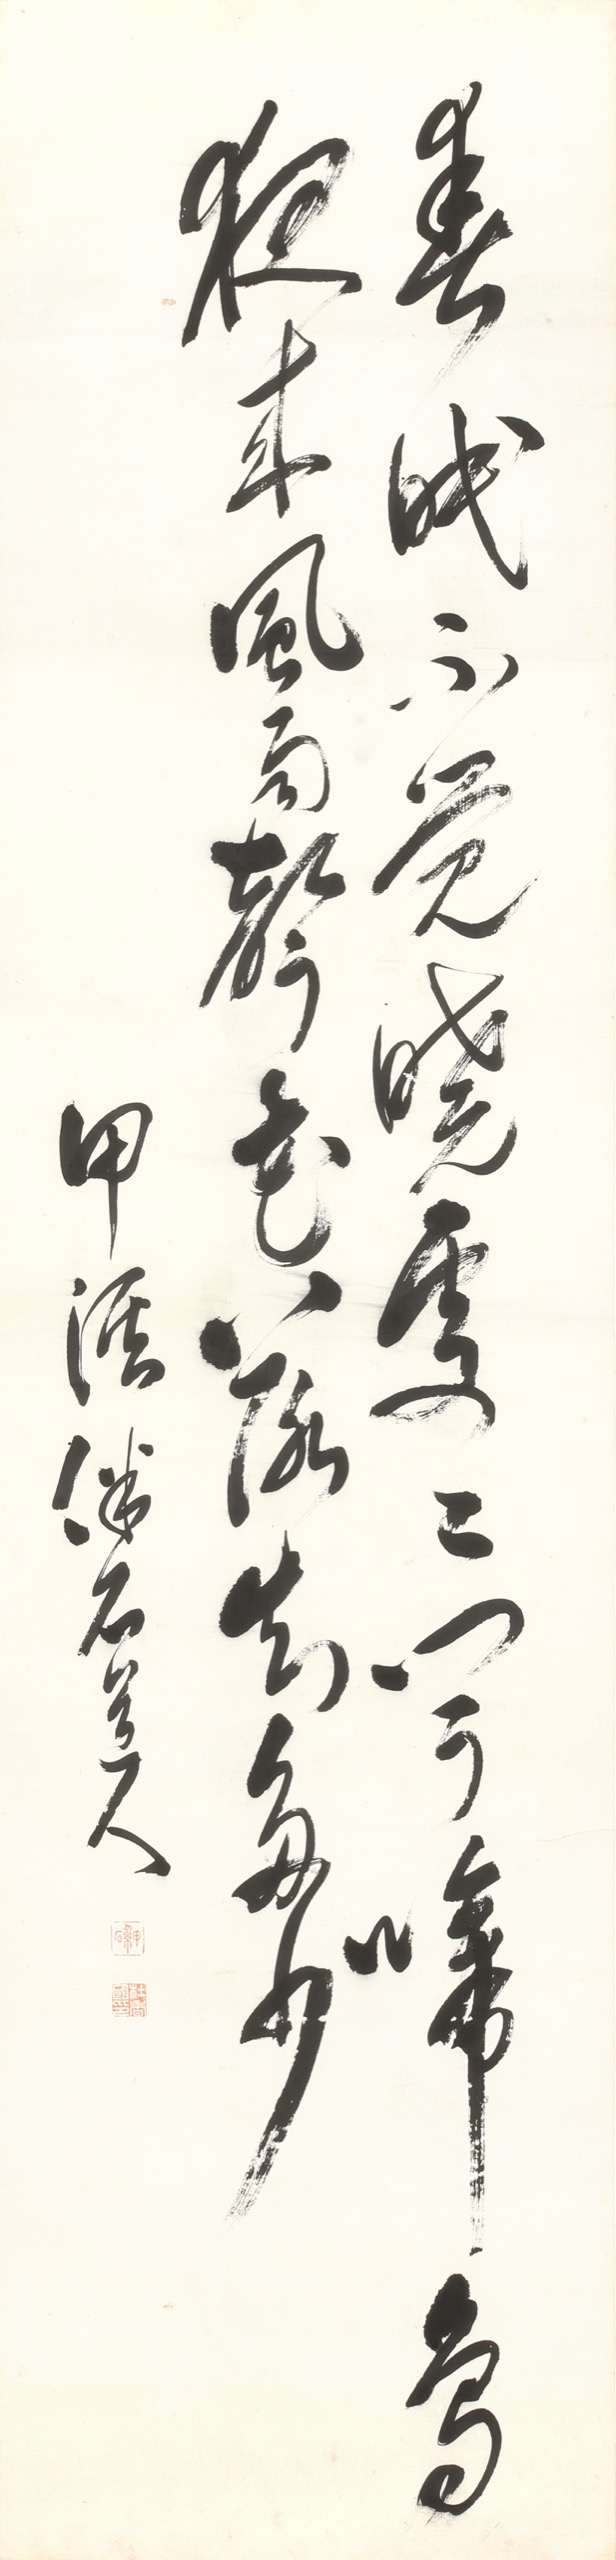 春眠不覺曉處々聞啼鳥
夜来風雨聲花落知多少
甲石道人